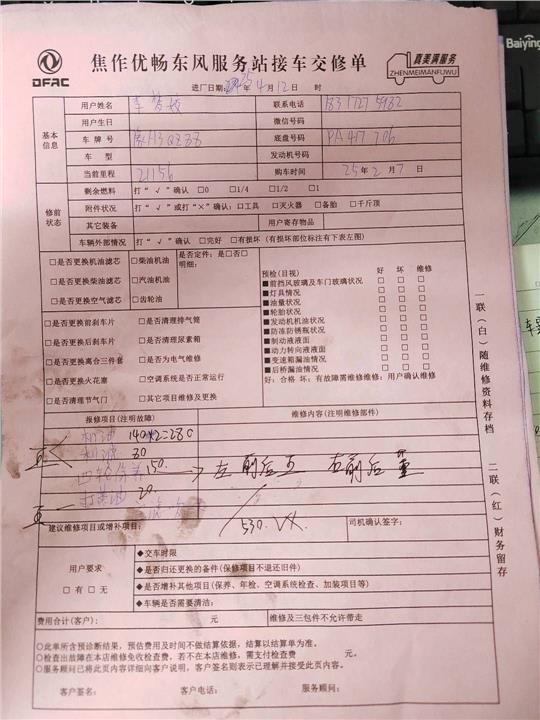 DFAC
焦作优畅东风服务站接车交修单
真美满服务
ZHENMEIMANFUWU
Baiying
进厂日期: 25年4月12日 时
基本信息
用户姓名 联系电话
用户生日 微信号码
车牌号 底盘号码 PA417706
车型 发动机号码
当前里程 21156 购车时间 25年2月7日
修前状态
剩余燃料 打“√”确认 □0 □1/4 □1/2 □1
附件状况 打“√”或打“×”确认:□工具 □灭火器 □备胎 □千斤顶
其它装备 用户寄存物品
车辆外部情况 打“√”确认 □完好 □有损坏(有损坏部位标注有下表左图)
□是否更换机油滤芯 □柴油机油 是否定件:是□否□
明细:
□是否更换柴油滤芯 □汽油机油
□是否更换空气滤芯 □齿轮油
□是否更换前刹车片 □是否清理排气筒
□是否更换后刹车片 □是否清理尿素箱
□是否更换离合三件套 □是否为电气维修
□是否更换火花塞 □空调系统是否正常运行
□是否清理节气门 □其它项目维修及更换
预检(目视) 好 坏 维修
■前挡风玻璃及车门玻璃状况 □ □ □
■灯具情况 □ □ □
■油量状况 □ □ □
■轮胎状况 □ □ □
■发动机机油状况 □ □ □
■防冻防锈瓶状况 □ □ □
■制动液液面 □ □ □
■动力转向液液面 □ □ □
■变速箱漏油情况 □ □ □
■后桥漏油情况 □ □ □
好:合格 坏:有故障需维修维修:用户确认维修
报修项目(注明故障) 维修内容(注明维修部件)
机油 140×2=280
机滤 80
四轮保养 150. 左前后 右前后
打黄油 20
530.
建议维修项目或增补项目: 司机确认签字:
用户要求
□有□无
◆交车时限
◆是否归还更换的备件(保修项目不退还旧件)
◆是否增补其他项目(保养、年检、空调系统检查、加装项目等)
◆车辆是否需要清洁:
费用合计(客户): 元 维修及三包件不允许带走
○此单所含预诊断结果,预估费用及时间不做结算依据,结算以结算单为准。
○检查出故障在本店维修免收检查费,若不在本店维修,需支付检查费 元。
○服务顾问已将此页内容详细向客户说明,客户签名则表示已理解并接受此页内容。
客户签名: 客户电话: 服务顾问:
一联(白)随维修资料存档
二联(红)财务留存